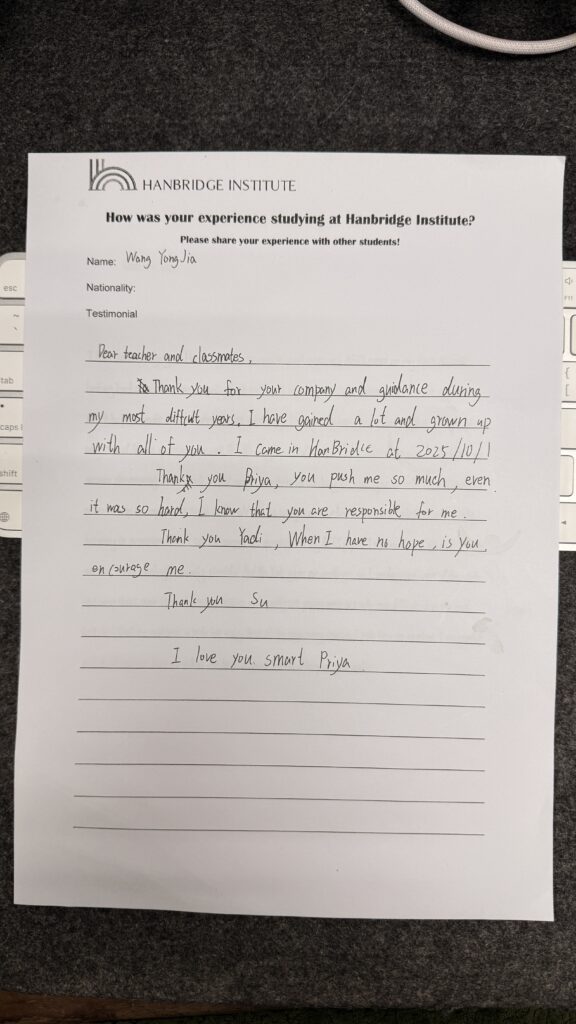 HANBRIDGE INSTITUTE
How was your experience studying at Hanbridge Institute?
Please share your experience with other students!
Name: Wang YongJia
Nationality:
Testimonial
Dear teacher and classmates,
Thank you for your company and guidance during
my most difficult years, I have gained a lot and grown up
with all of you. I come in HanBridle at 2025/10/1
Thank you Priya, you push me so much, even
it was so hard, I know that you are responsible for me.
Thank you Yadi, When I have no hope, is you
encourage me.
Thank you Su
I love you smart Priya
esc
~
`
tab
caps
shift
{
[